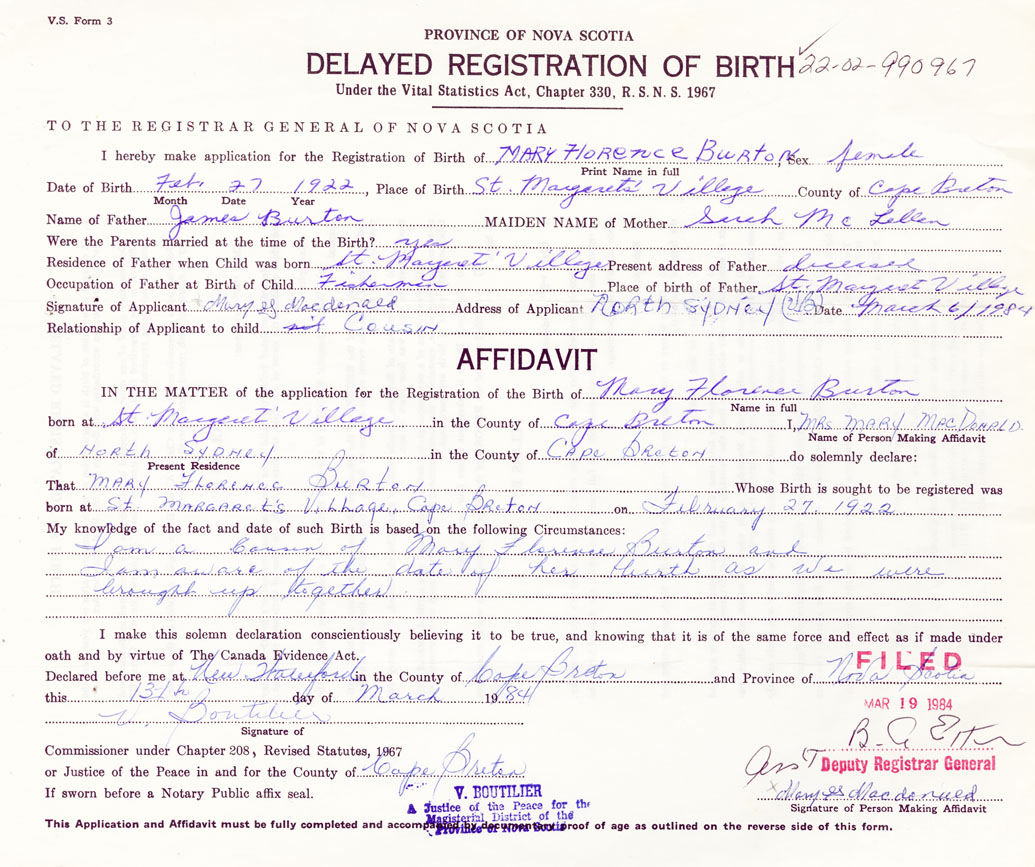 V.S. Form 3
PROVINCE OF NOVA SCOTIA
DELAYED REGISTRATION OF BIRTH 22-02-990967
Under the Vital Statistics Act, Chapter 330, R.S.N.S. 1967
TO THE REGISTRAR GENERAL OF NOVA SCOTIA
I hereby make application for the Registration of Birth of MARY FLORENCE BURTON, Sex female
Print Name in full
Date of Birth Feb. 27 1922, Place of Birth St. Margarets Village County of Cape Breton
Month Date Year
Name of Father James Burton MAIDEN NAME of Mother Sarah Mc Lellen
Were the Parents married at the time of the Birth? yes
Residence of Father when Child was born St. Margaret' Village Present address of Father diseased
Occupation of Father at Birth of Child Fisherman Place of birth of Father St. Margaret Village
Signature of Applicant Mary Macdonald Address of Applicant NORTH SYDNEY Date March 6/1984
Relationship of Applicant to child COUSIN
AFFIDAVIT
IN THE MATTER of the application for the Registration of the Birth of Mary Florence Burton
Name in full
born at St. Margaret' Village in the County of Cape Breton I, MRS MARY MACDONALD
Name of Person Making Affidavit
of NORTH SYDNEY in the County of CAPE BRETON do solemnly declare:
Present Residence
That MARY FLORENCE BURTON Whose Birth is sought to be registered was
born at ST. MARGARET'S VILLAGE, CAPE BRETON on February 27, 1922
My knowledge of the fact and date of such Birth is based on the following Circumstances:
I am a Cousin of Mary Florence Burton and
I am aware of the date of her Burth as we were
brought up together.
I make this solemn declaration conscientiously believing it to be true, and knowing that it is of the same force and effect as if made under
oath and by virtue of The Canada Evidence Act.
FILED
Declared before me at New Waterford in the County of Cape Breton and Province of Nova Scotia
this 13th day of March 1984
MAR 19 1984
V. Boutilier
Signature of
B. A. Etter
Commissioner under Chapter 208, Revised Statutes, 1967
or Justice of the Peace in and for the County of Cape Breton
Ass't Deputy Registrar General
If sworn before a Notary Public affix seal.
V. BOUTILIER
A Justice of the Peace for the
Magisterial District of the
Province of Nova Scotia
Mary Macdonald
Signature of Person Making Affidavit
This Application and Affidavit must be fully completed and accompanied by documentary proof of age as outlined on the reverse side of this form.